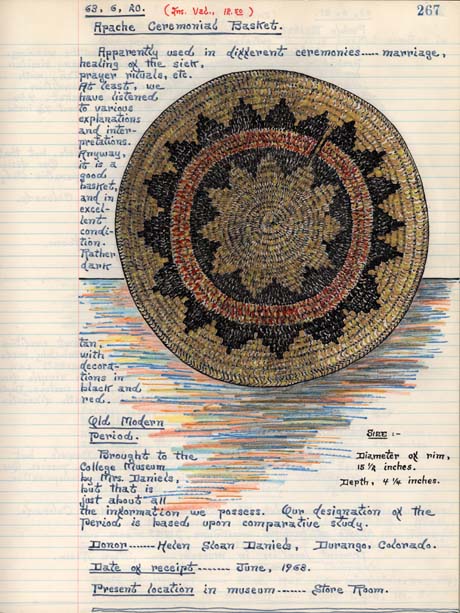 68, 6, 20. (Ins. Val., 12.50) 267
Apache Ceremonial Basket.
Apparently used in different ceremonies---- marriage,
healing of the sick,
prayer rituals, etc.
At least, we
have listened
to various
explanations
and inter-
pretations.
Anyway,
it is a
good
basket,
and in
excel-
lent
condi-
tion.
Rather
dark
tan,
with
decora-
tions in
black and
red.
Old Modern
Period.
Brought to the
College Museum
by Mrs. Daniels,
but that is
just about all
the information we possess. Our designation of the
Period is based upon comparative study.
Size :-
Diameter of rim,
15 1/4 inches.
Depth, 4 1/4 inches.
Donor------ Helen Sloan Daniels, Durango, Colorado.
Date of receipt------- June, 1968.
Present location in museum------ Store Room.